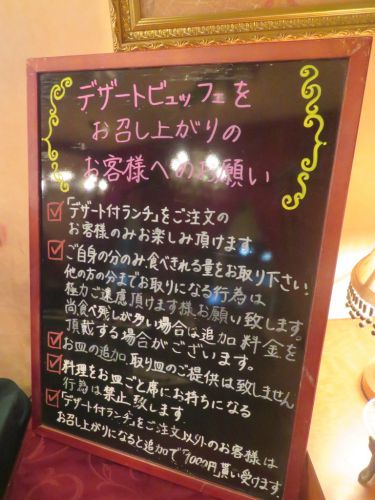 デザートビュッフェを
お召し上がりの
お客様へのお願い
「デザート付ランチ」をご注文の
お客様のみお楽しみ頂けます
ご自身の分のみ食べきれる量をお取り下さい
他の方の分までお取りになる行為は
極力ご遠慮頂けます様お願い致します。
尚食べ残しが多い場合は追加料金を
頂戴する場合がございます。
お皿の追加取り皿のご提供は致しません
料理をお皿ごと席にお持ちになる
行為は禁止致します
「デザート付ランチ」をご注文以外のお客様は
お召し上がりになると追加で「1000円」貰い受けます。